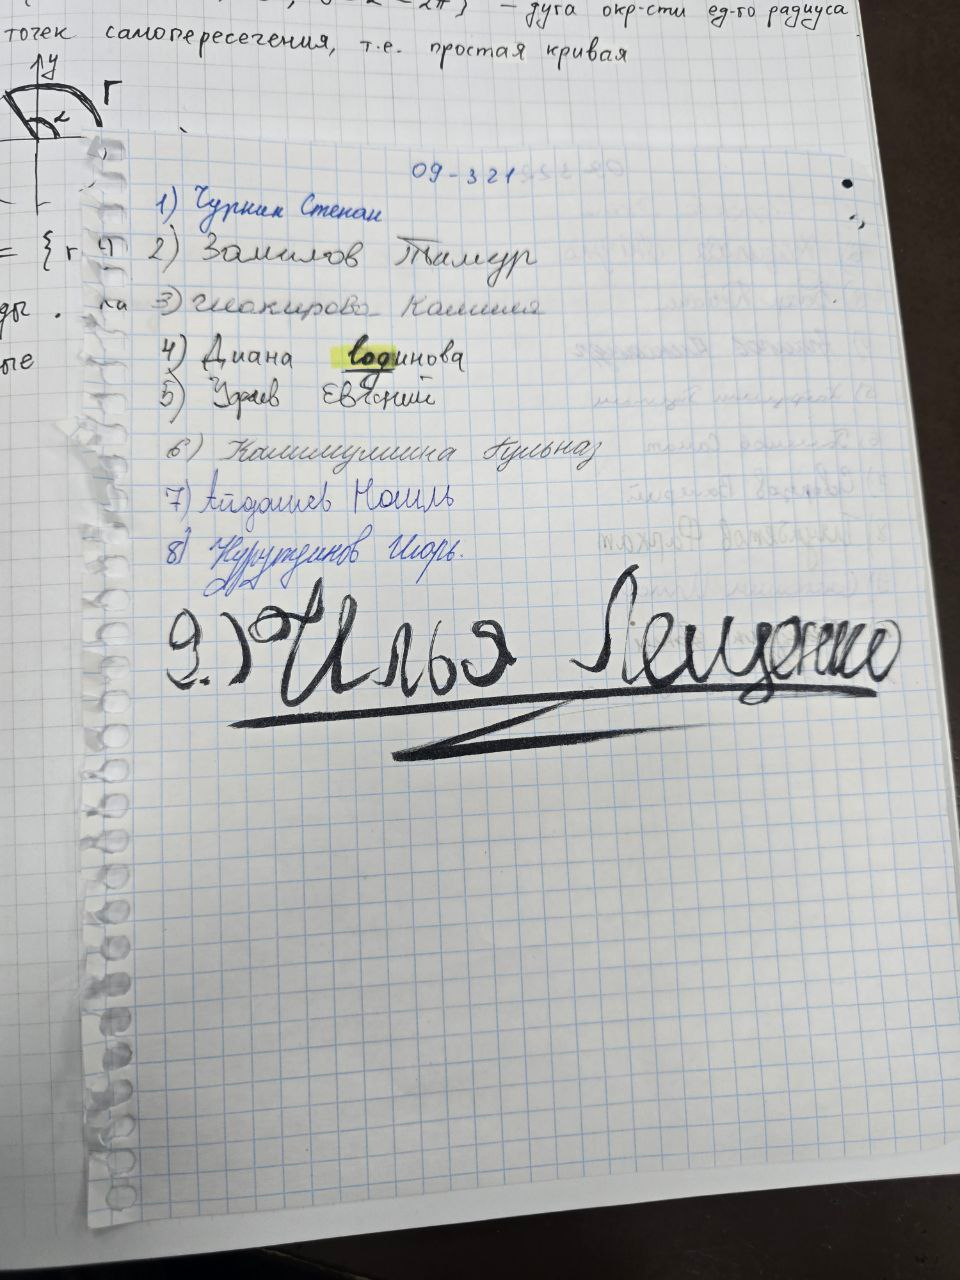 - дуга окр-сти ед-го радиуса
точек самопересечения, т.е. простая кривая
y
Г
α
= { r
ды.
ые
09-321
1) Чурнин Степан
2) Замилов Тимур
3) Шакирова Камилла
4) Диана Водинова
5) Евгений
6) Калимуллина Гульназ
7) Айдашев Наиль
8) Нурутдинов Игорь.
9.) Илья Лещенко